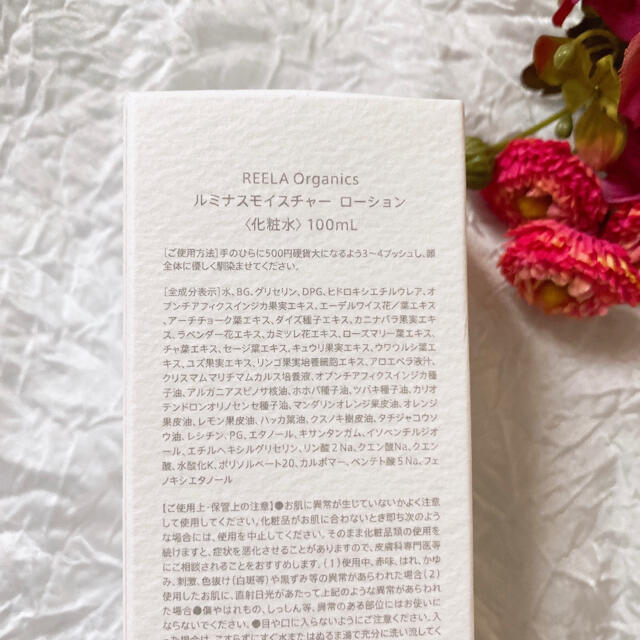 REELA Organics
ルミナスモイスチャー ローション
〈化粧水〉100mL
［ご使用方法］手のひらに500円硬貨大になるよう3〜4プッシュし、顔
全体に優しく馴染ませてください。
［全成分表示］水、BG、グリセリン、DPG、ヒドロキシエチルウレア、オ
プンチアフィクスインジカ果実エキス、エーデルワイス花／葉エキス
、アーチチョーク葉エキス、ダイズ種子エキス、カニナバラ果実エキス
、ラベンダー花エキス、カミツレ花エキス、ローズマリー葉エキス、
チャ葉エキス、セージ葉エキス、キュウリ果実エキス、ウワウルシ葉エ
キス、ユズ果実エキス、リンゴ果実培養細胞エキス、アロエベラ液汁、
クリスマムマリチマムカルス培養液、オプンチアフィクスインジカ種
子油、アルガニアスピノサ核油、ホホバ種子油、ツバキ種子油、カリオ
デンドロンオリノセンセ種子油、マンダリンオレンジ果皮油、オレンジ
果皮油、レモン果皮油、ハッカ葉油、クスノキ樹皮油、タチジャコウソ
ウ油、レシチン、PG、エタノール、キサンタンガム、イソペンチルジオ
ール、エチルヘキシルグリセリン、リン酸2Na、クエン酸Na、クエン
酸、水酸化K、ポリソルベート20、カルボマー、ペンテト酸5Na、フェ
ノキシエタノール
【ご使用上・保管上の注意】●お肌に異常が生じていないかよく注意
して使用してください。化粧品がお肌に合わないとき即ち次のよう
な場合には、使用を中止してください。そのまま化粧品類の使用を
続けますと、症状を悪化させることがありますので、皮膚科専門医等
にご相談されることをおすすめします。（1）使用中、赤味、はれ、かゆ
み、刺激、色抜け（白斑等）や黒ずみ等の異常があらわれた場合（2）
使用したお肌に、直射日光があたって上記のような異常があらわれ
た場合●傷やはれもの、しっしん等、異常のある部位にはお使いに
ならないでください。●目や口に入らないようご注意ください。入
った場合は、こすらずにすぐ水またはぬるま湯で充分に洗い流してく